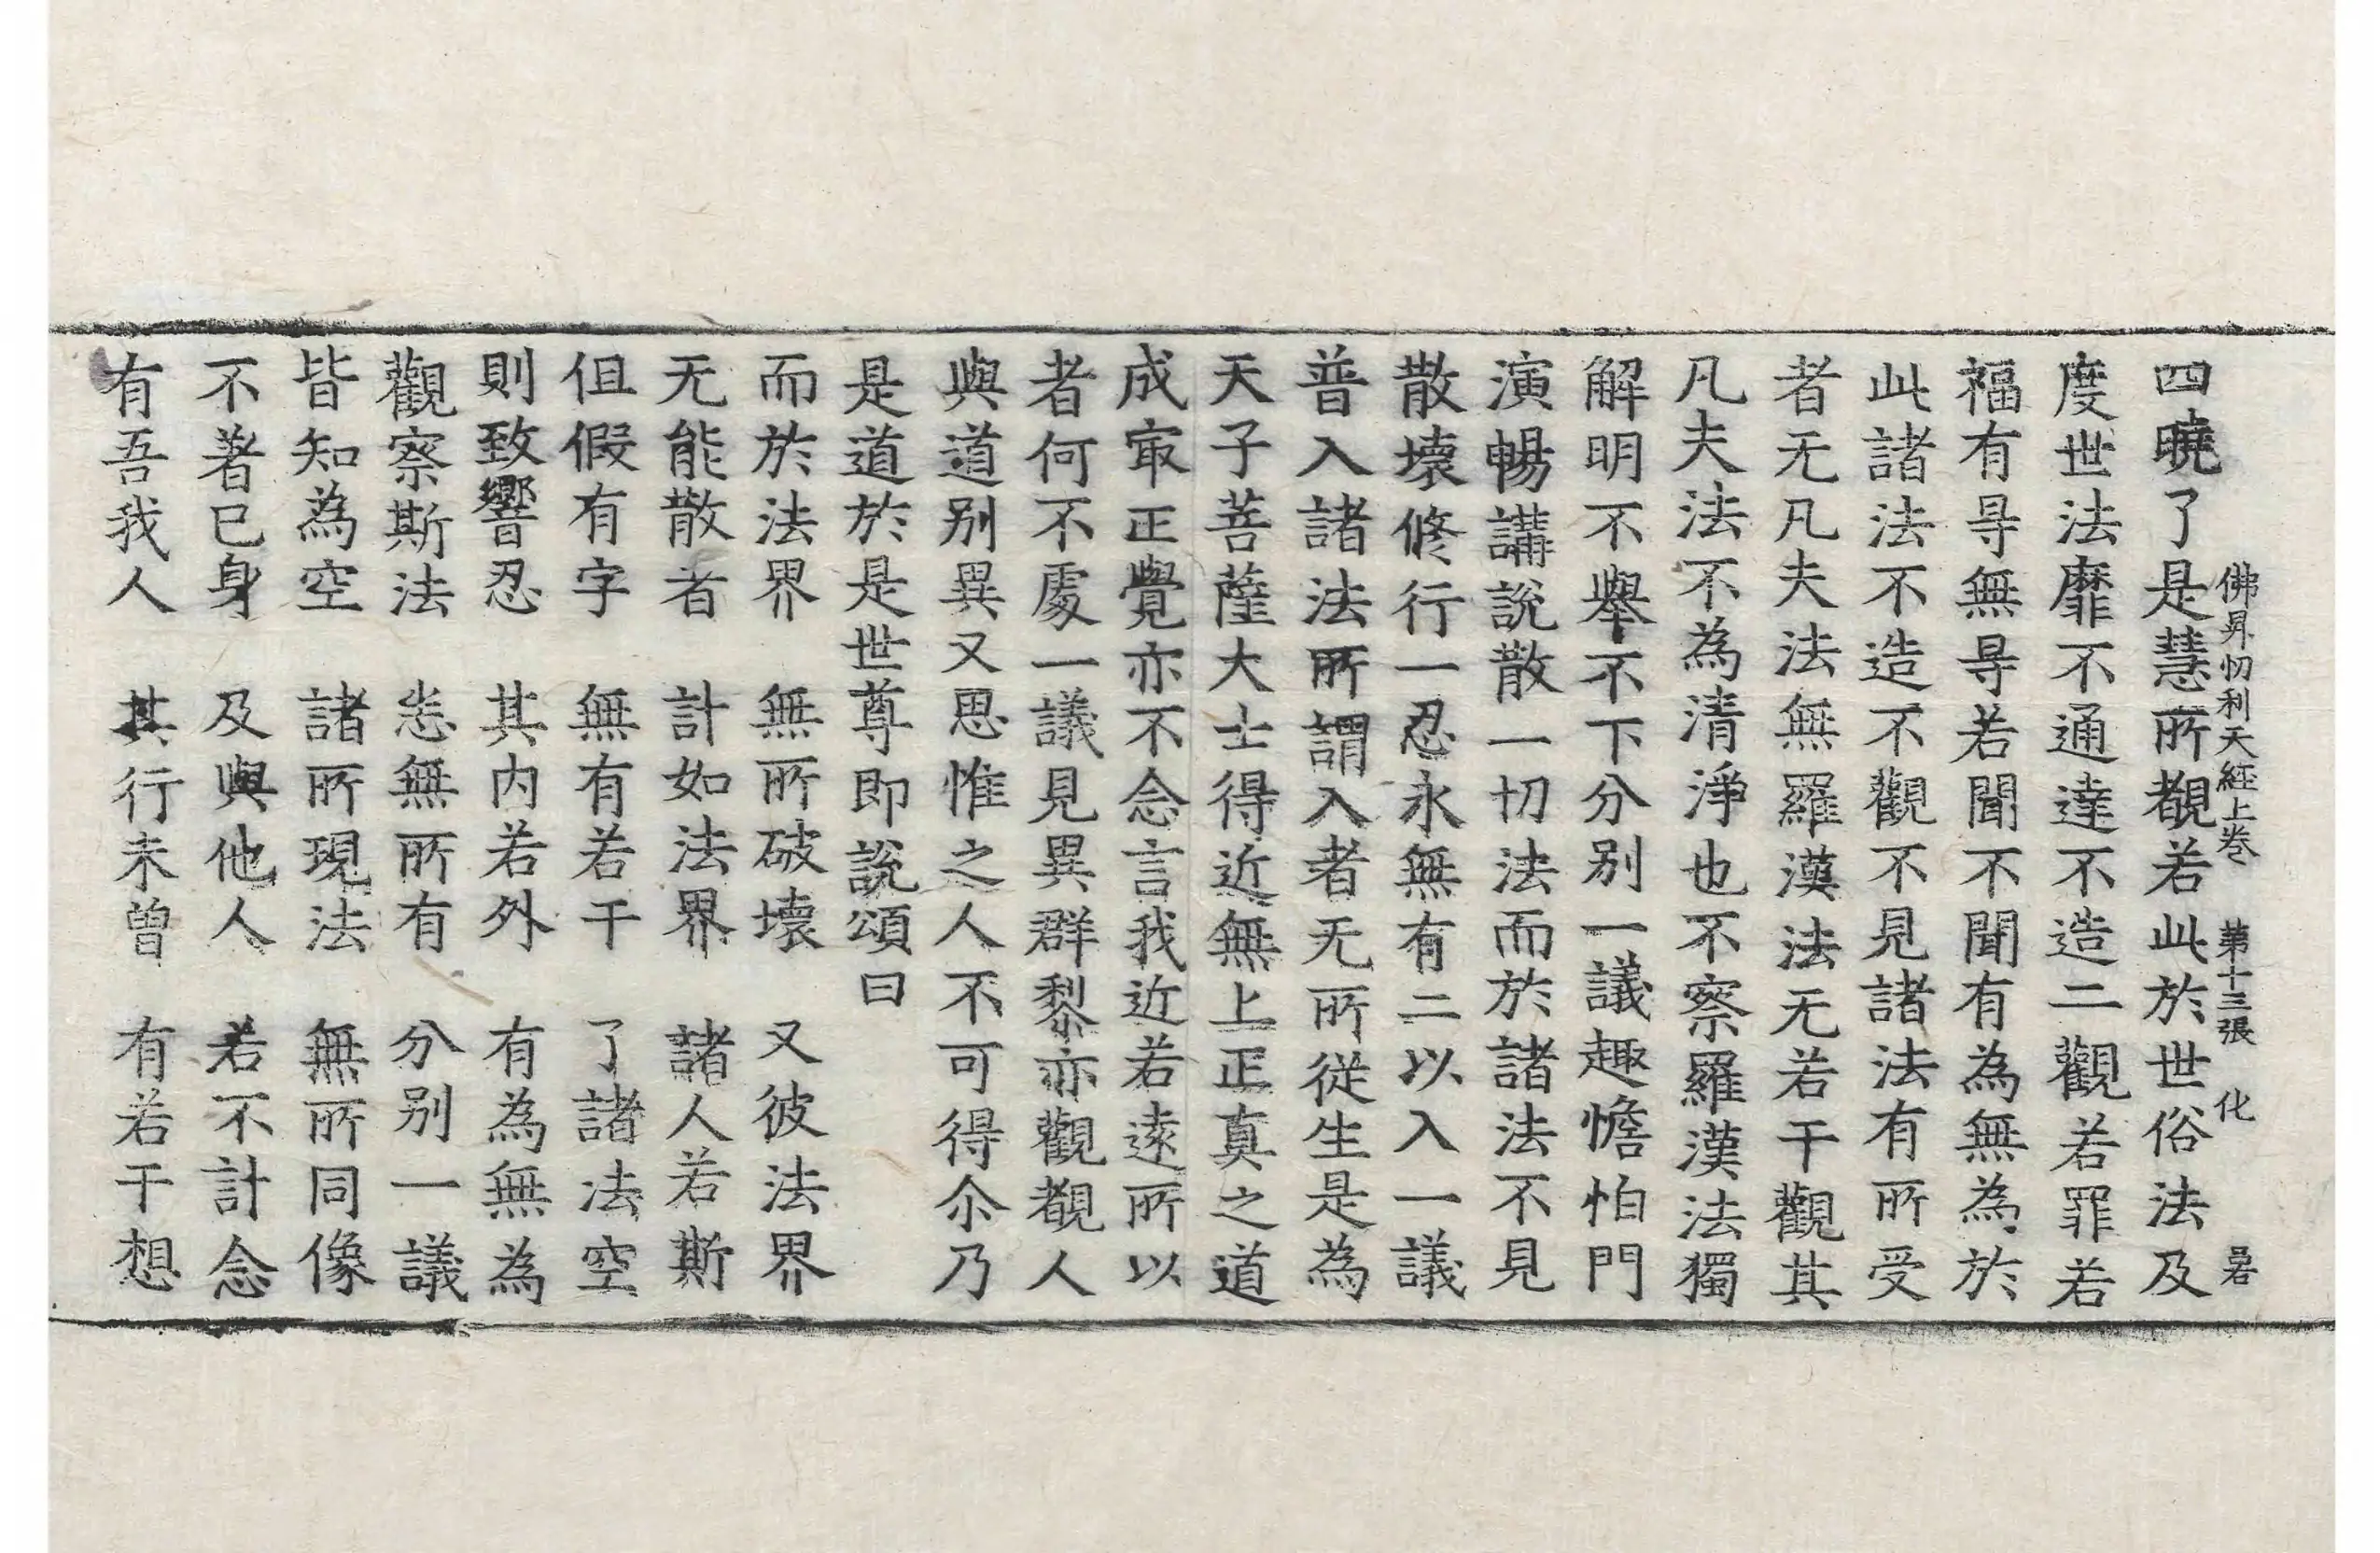 佛昇忉利天經上卷 第十三張 化
四曉了是慧所覩若此於世俗法及
度世法靡不通達不造二觀若罪若
福有㝵無㝵若聞不聞有為無為於
此諸法不造不觀不見諸法有所受
者无凡夫法無羅漢法无若干觀其
凡夫法不為清淨也不察羅漢法獨
解明不舉不下分別一議趣憺怕門
演暢講說散一切法而於諸法不見
散壞修行一忍永無有二以入一議
普入諸法所謂入者无所從生是為
天子菩薩大士得近無上正真之道
成㝡正覺亦不念言我近若遠所以
者何不處一議見異群黎亦觀覩人
與道別異又思惟之人不可得尒乃
是道於是世尊即說頌曰
而於法界 無所破壞 又彼法界
无能散者 計如法界 諸人若斯
但假有字 無有若干 了諸法空
則致響忍 其內若外 有為無為
觀察斯法 悉無所有 分別一議
皆知為空 諸所現法 無所同像
不著已身 及與他人 若不計念
有吾我人 其行未曾 有若干想